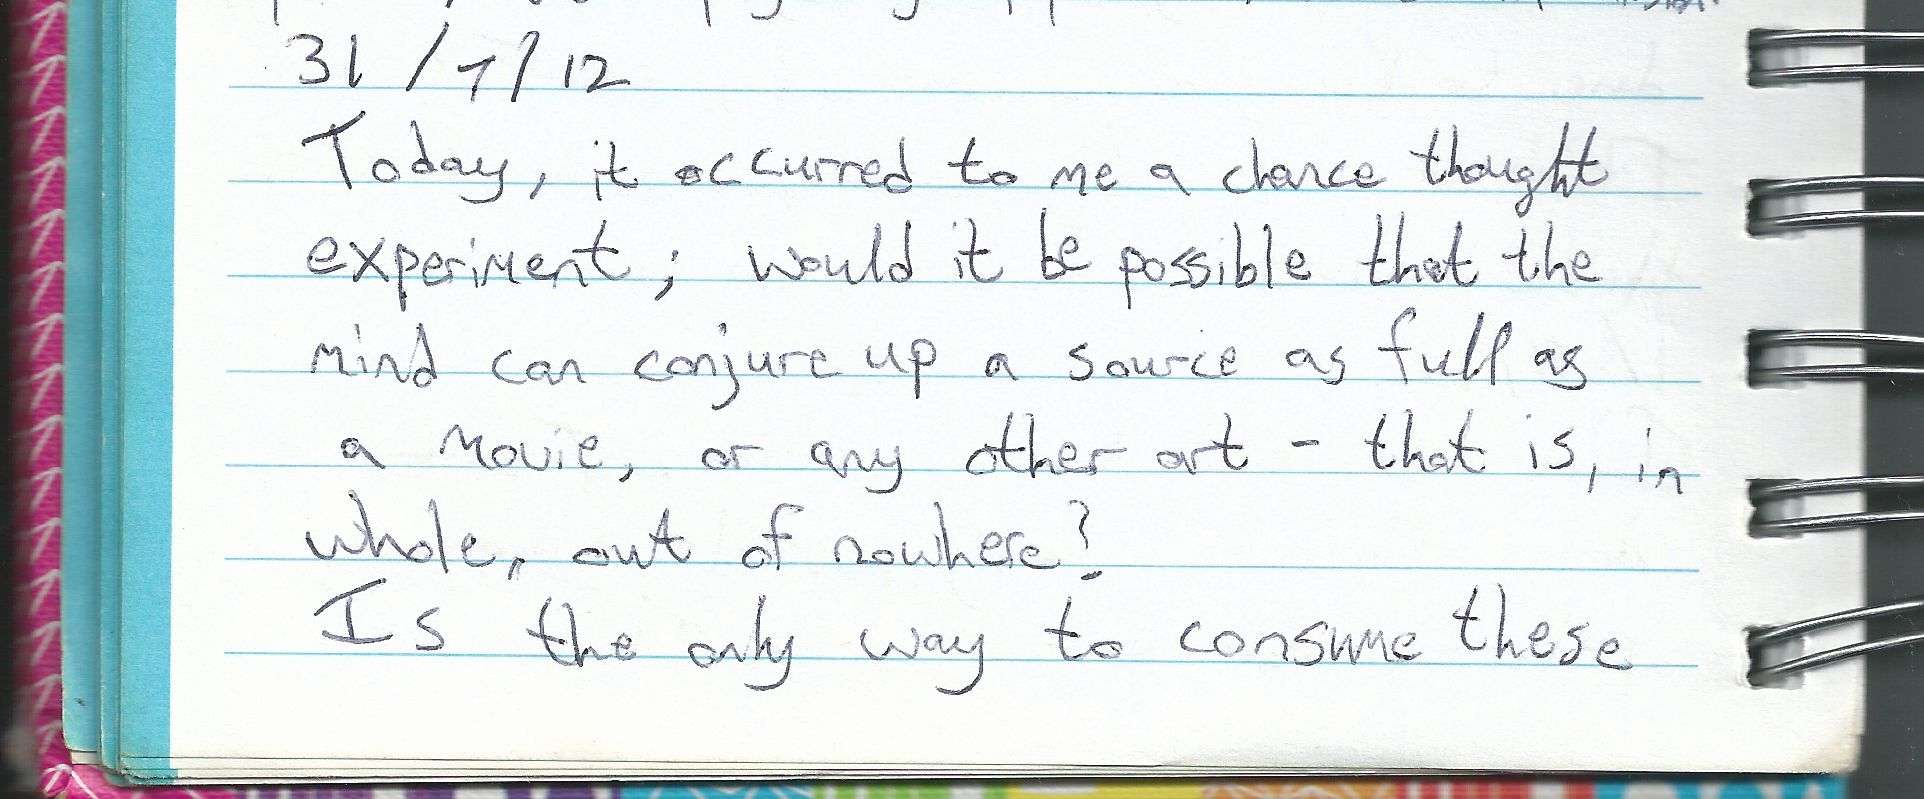 31/7/12
Today, it occurred to me a chance thought
experiment; would it be possible that the
mind can conjure up a source as full as
a movie, or any other art - that is, in
whole, out of nowhere?
Is the only way to consume these